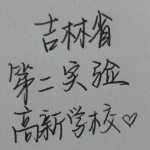 吉林省
第二实验
高新学校♡